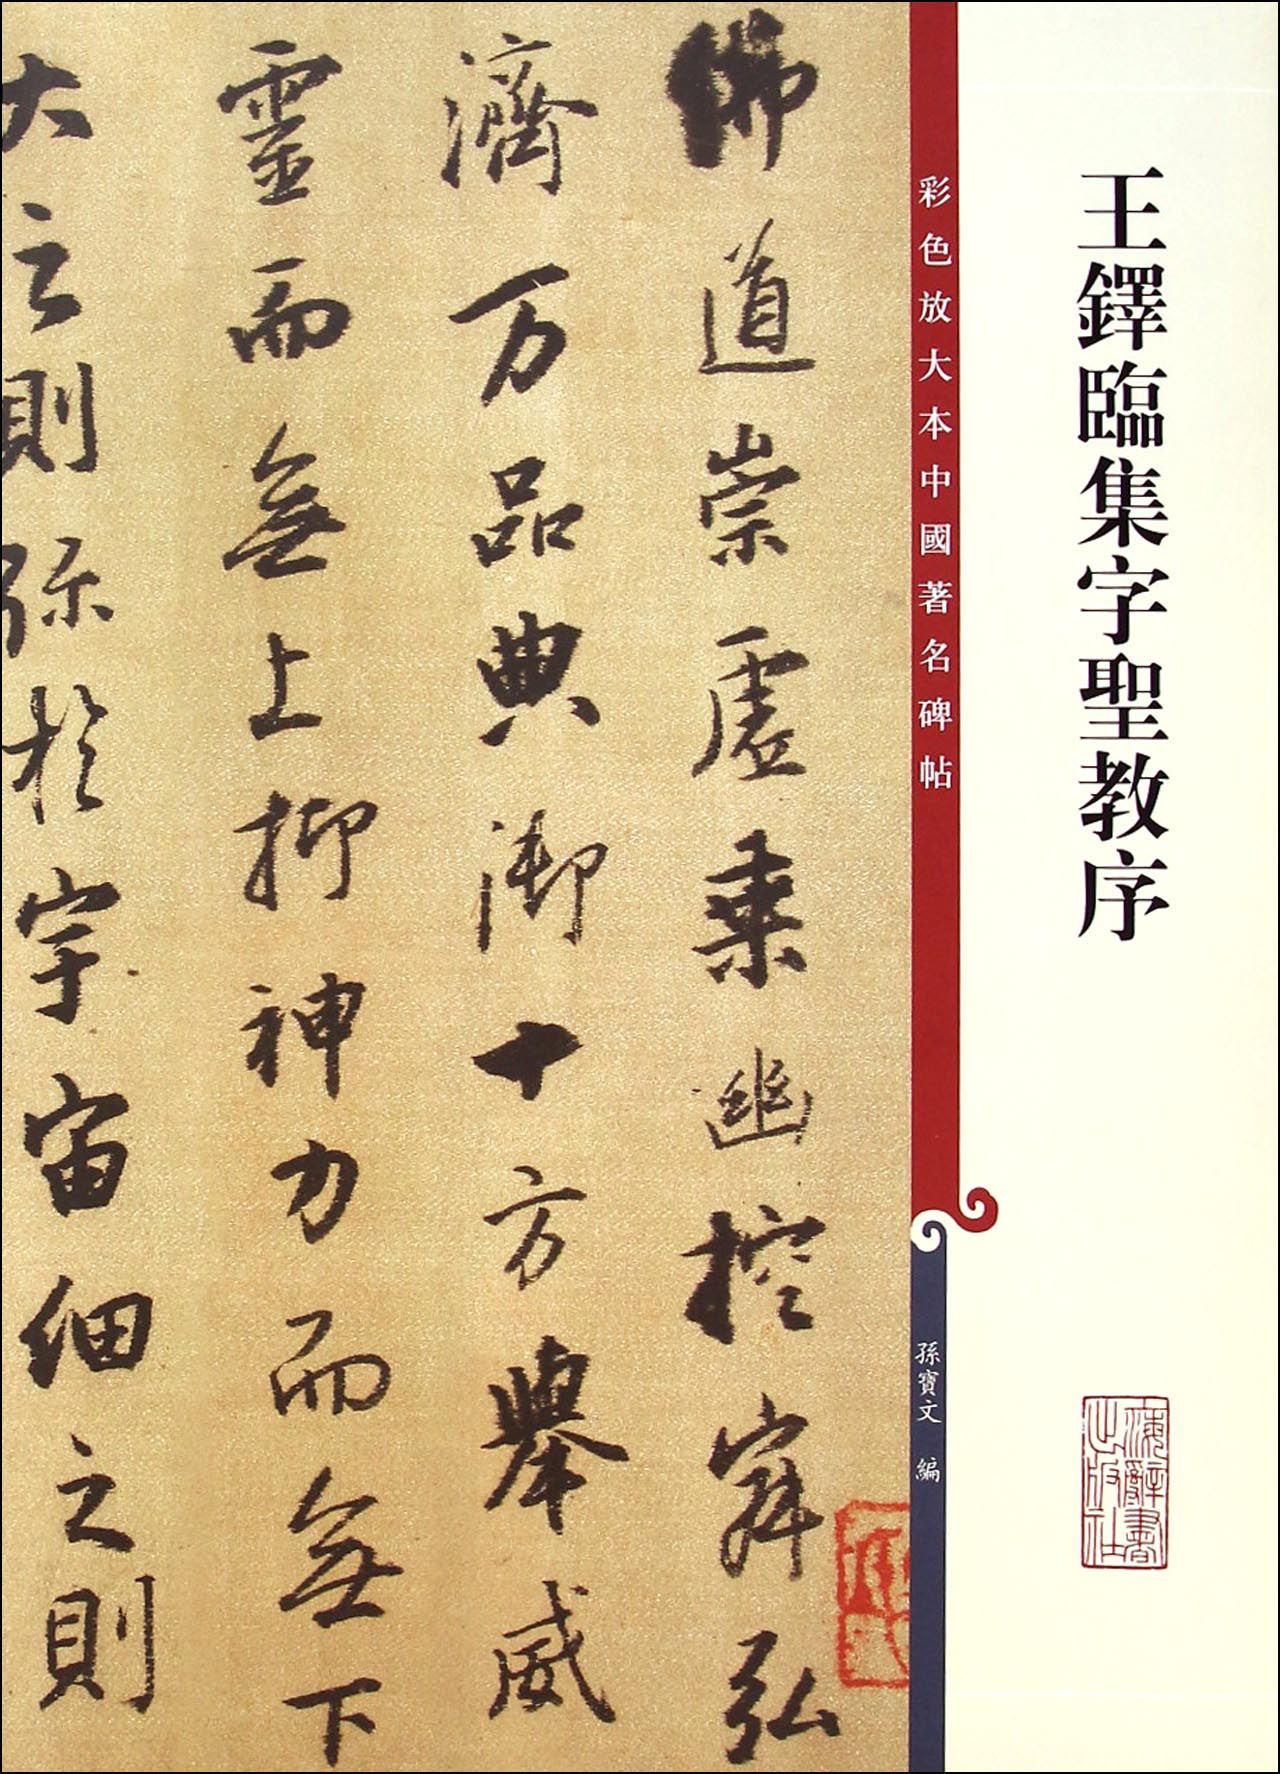 王鐸臨集字聖教序
上海辭書
出版社
彩色放大本中國著名碑帖
孫寶文 編
佛道崇虛乘幽控寂弘
濟万品典御十方舉威
靈而無上抑神力而無下
大之則弥於宇宙細之則